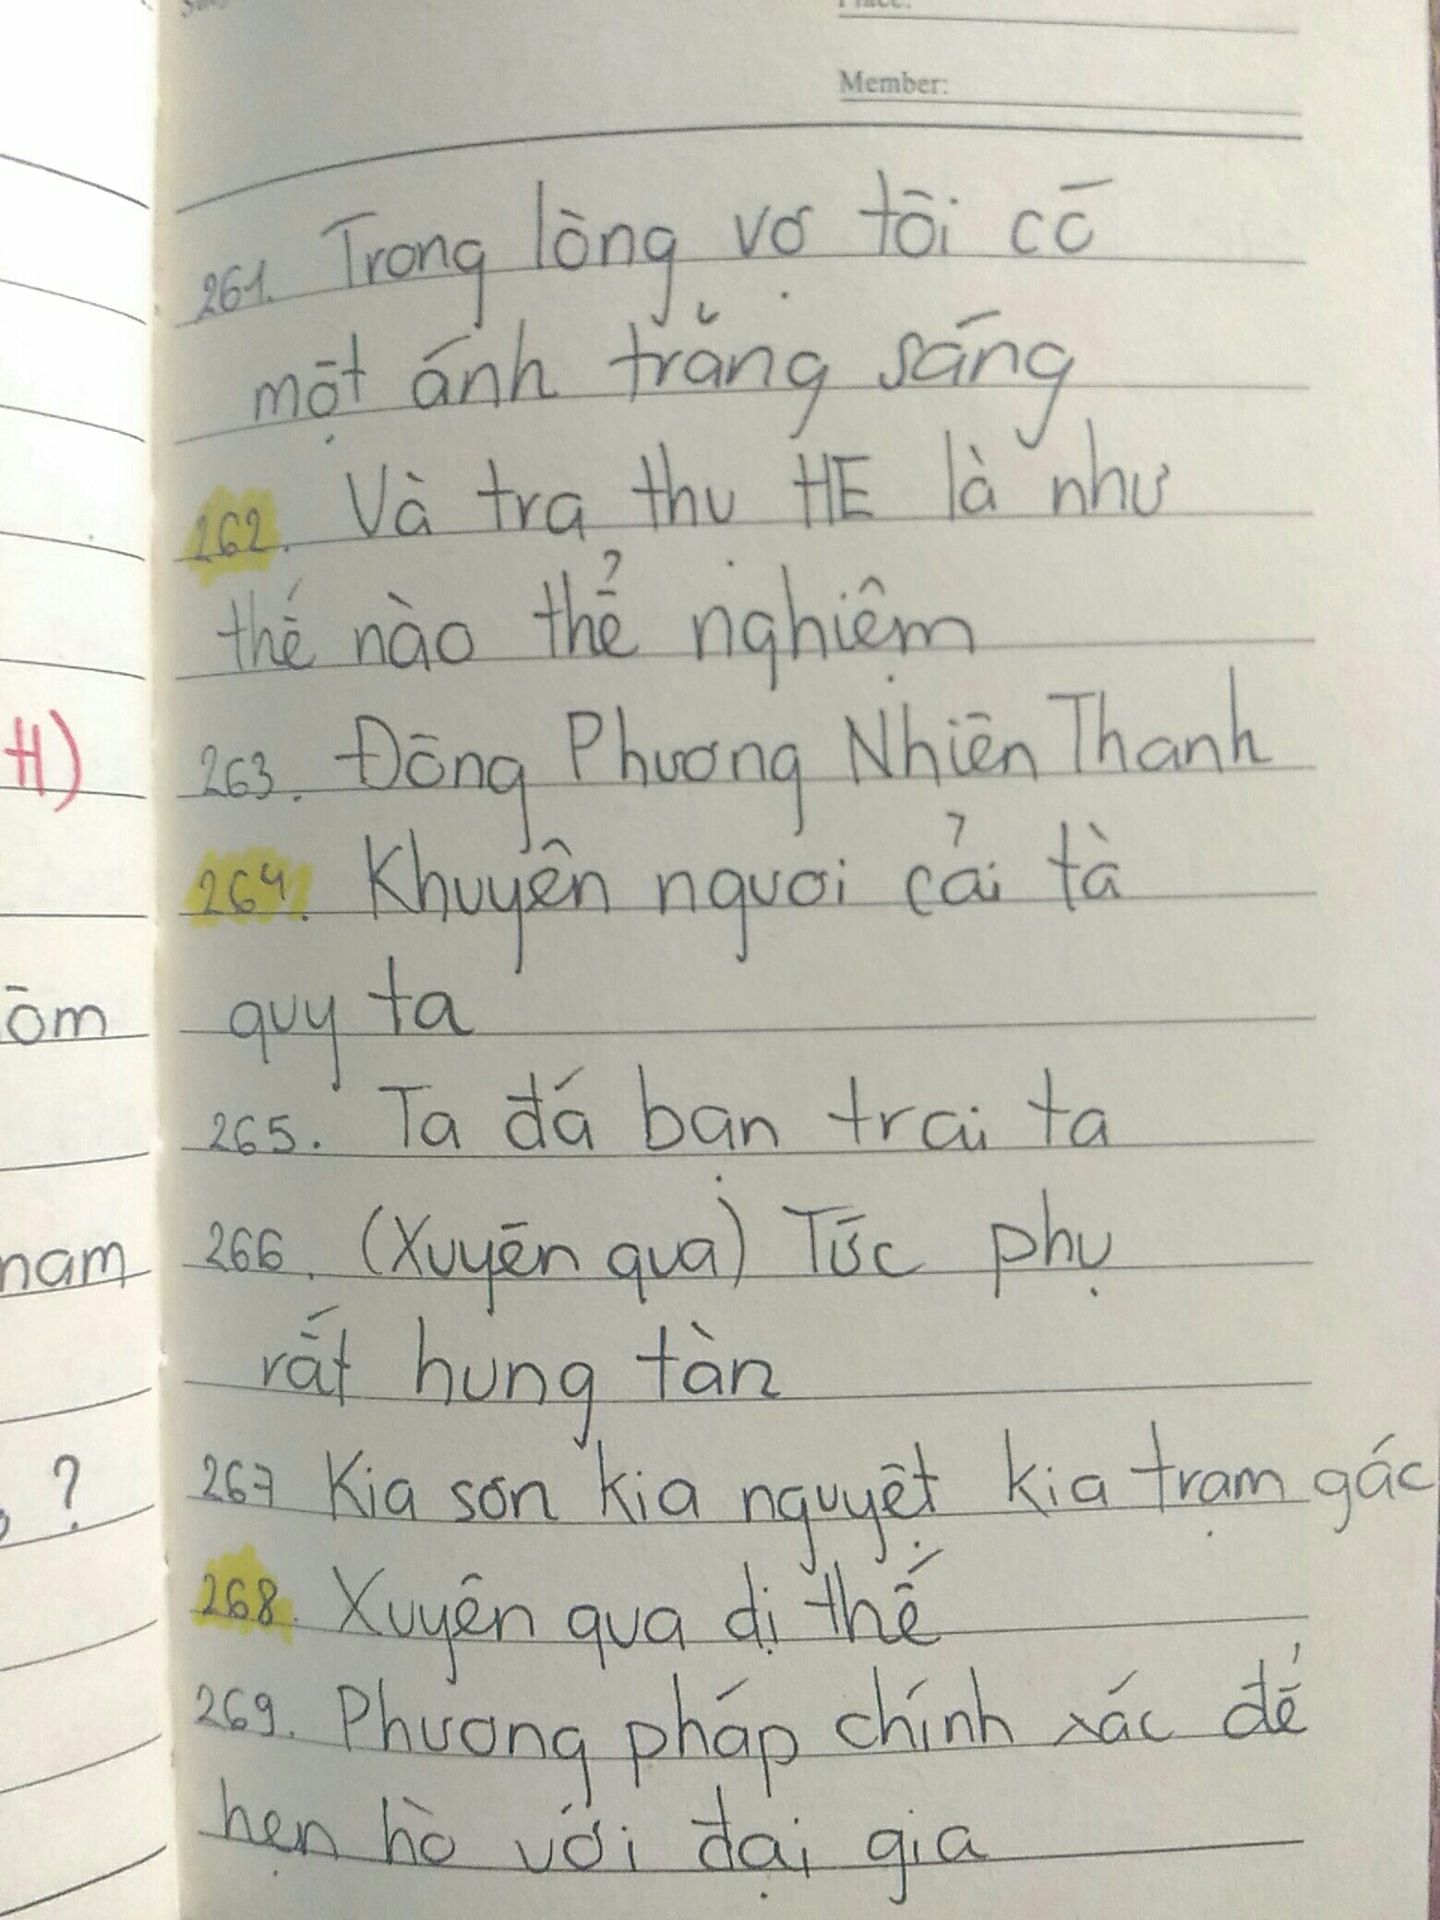 Member:
261. Trong lòng vợ tôi có
một ánh trăng sáng
262. Và tra thụ HE là như
thế nào thể nghiệm
H)
263. Đông Phương Nhiên Thanh
264. Khuyên ngươi cải tà
ôm
quy ta
265. Ta đá bạn trai ta
nam
266. (Xuyên qua) Tức phụ
rất hung tàn
?
267 Kia sơn kia nguyệt kia trạm gác
268. Xuyên qua dị thế
269. Phương pháp chính xác để
hẹn hò với đại gia